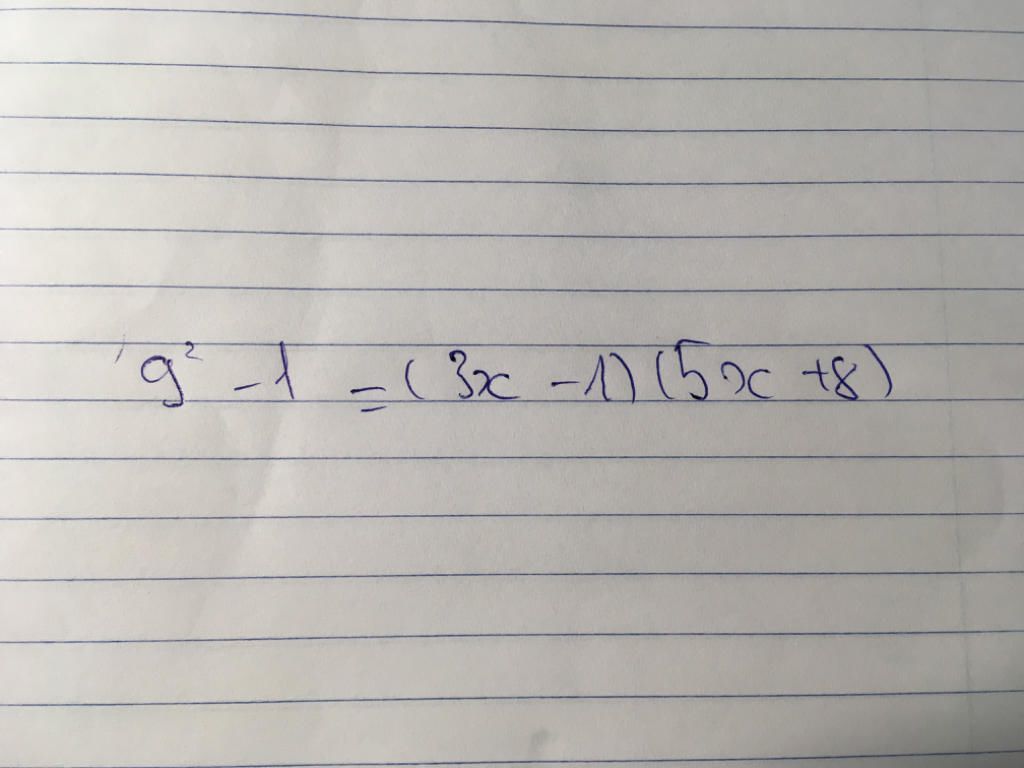 9² - 1 = (3x - 1) (5x + 8)